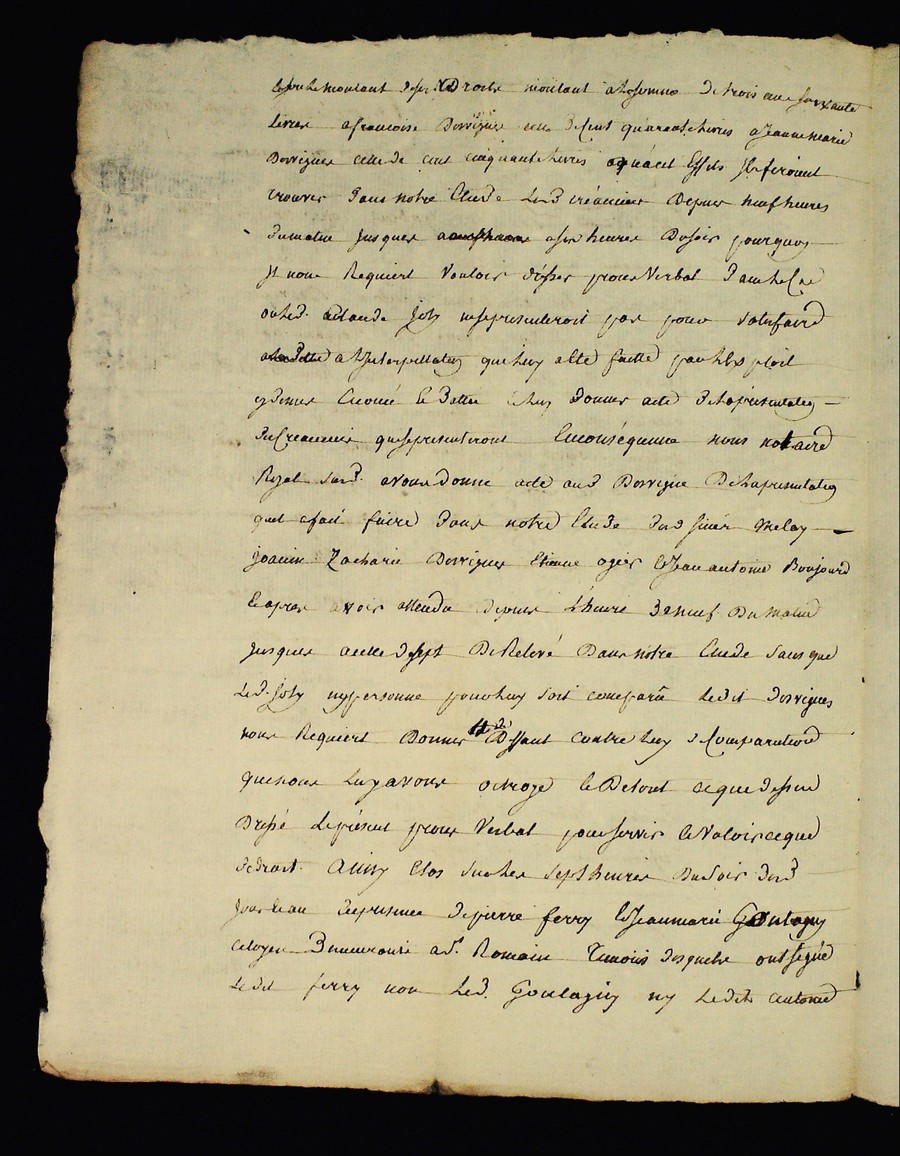 montant de ses Droits montant a la somme de trois cens soixante
Livres a francoise Dorrigues celle de Cent quarante livres a Jeanne marie
Dorrigues celle de cent cinquante livres a quoi Effets se feroient
trouver Dans notre Etude Lesd créanciers Depuis neuf heures
Dumatin jusques a six heures Dusoir pourquoy
Il nous Requiert Vouloir dresser proces Verbal
ouled. Claude Joly nese presenteroit pas pour satisfaire
a L'interpellation que luy a eté faitte par l'Exploit
cy Dessus Enoncé et Dattée Luy Donner acte De la presentation
Des Creanciers quise presenteront Enconséquence nous notaire
Royal sousd. avons donné acte aud Dorrigue De la presentation
quil a fait faire Dans notre Etude Desd sieurs Melay
Joacim Zacharie Dorrigues Etienne ogier et Jean antoine Boujourd
Et apres avoir attendu depuis L'heure De neuf Du matin
jusques acelle de sept De Relevé Dans notre Etude sans que
Led. Joly ny personne pour luy soit comparu ledit Dorrigues
nous Requiert Donner Deffaut contre luy De Comparution
que nous Luy avons octroyé et De tout ce que dessus
Dressé le présent proces Verbal pour servir et Valoir ce que
de droit. Ainsy Clos sur les sept heures Du soir Dud
jour En presence de pierre ferry et Jean marie Goutagny
Citoyen Demeurant a St. Romain Temoins Lesquels ont signé
Ledit ferry non Led. Goutagny ny Ledit antoine